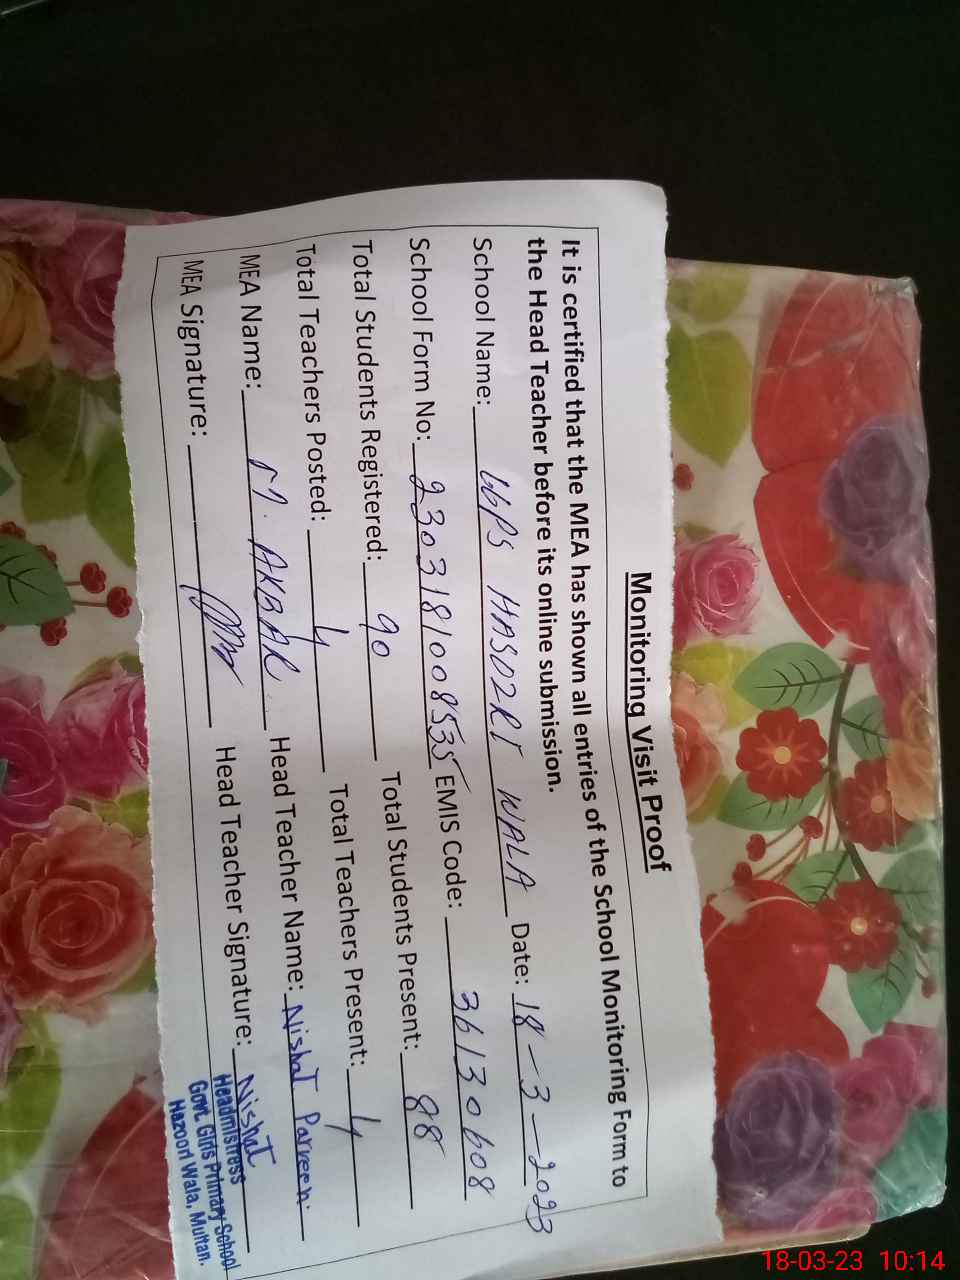 Monitoring Visit Proof
It is certified that the MEA has shown all entries of the School Monitoring Form to
the Head Teacher before its online submission.
School Name: GGPS HAZOORI WALA Date: 18-3-2023
School Form No: 2303181008535 EMIS Code: 36130608
Total Students Registered: 90 Total Students Present: 88
Total Teachers Posted: 4 Total Teachers Present: 4
MEA Name: M. AKBAR Head Teacher Name: Nishat Parveen
MEA Signature: Head Teacher Signature: Nishat
Headmistress
Govt. Girls Primary School
Hazoori Wala, Multan.
18-03-23 10:14